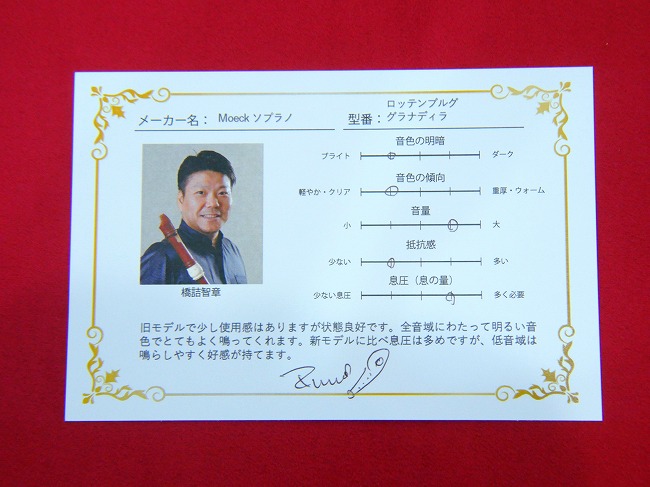 ロッテンブルグ
メーカー名： Moeck ソプラノ 型番： グラナディラ
音色の明暗
ブライト ダーク
音色の傾向
軽やか・クリア 重厚・ウォーム
音量
小 大
抵抗感
少ない 多い
息圧（息の量）
少ない息圧 多く必要
橋詰智章
旧モデルで少し使用感はありますが状態良好です。全音域にわたって明るい音
色でとてもよく鳴ってくれます。新モデルに比べ息圧は多めですが、低音域は
鳴らしやすく好感が持てます。